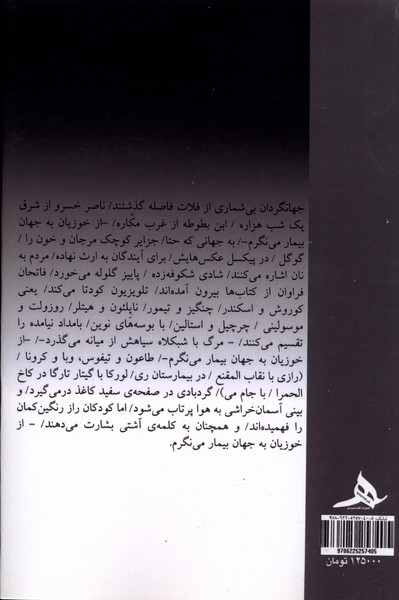 جهانگردان بی‌شماری از فلات فاصله گذشتند/ ناصر خسرو از شرق
یک شب هزاره / ابن بطوطه از غرب مکاره/ –از خوزیان به جهان
بیمار می‌نگرم–/ به جهانی که حتا/ جزایر کوچک مرجان و خون را /
گوگل / در پیکسل عکس‌هایش/ برای آیندگان به ارث نهاده/ مردم به
نان اشاره می‌کنند/ شادی شکوفه‌زده / پاییز گلوله می‌خورد/ فاتحان
فراوان از کتاب‌ها بیرون آمده‌اند/ تلویزیون کودتا می‌کند/ یعنی
کوروش و اسکندر/ چنگیز و تیمور/ ناپلئون و هیتلر/ روزولت و
موسولینی / چرچیل و استالین/ با بوسه‌های نوین/ بامداد نیامده را
تقسیم می‌کنند/ – مرگ با شبکلاه سیاهش از میانه می‌گذرد–/ –از
خوزیان به جهان بیمار می‌نگرم–/ طاعون و تیفوس، وبا و کرونا /
(رازی با نقاب المقنع / در بیمارستان ری/ لورکا با گیتار تارگا در کاخ
الحمرا / با جام می)/ گردبادی در صفحه‌ی سفید کاغذ درمی‌گیرد/ و
بینی آسمان‌خراشی به هوا پرتاب می‌شود/ اما کودکان راز رنگین‌کمان
را فهمیده‌اند/ و همچنان به کلمه‌ی آشتی بشارت می‌دهند/ – از
خوزیان به جهان بیمار می‌نگرم.
9786225257405
۱۲۵۰۰۰ تومان